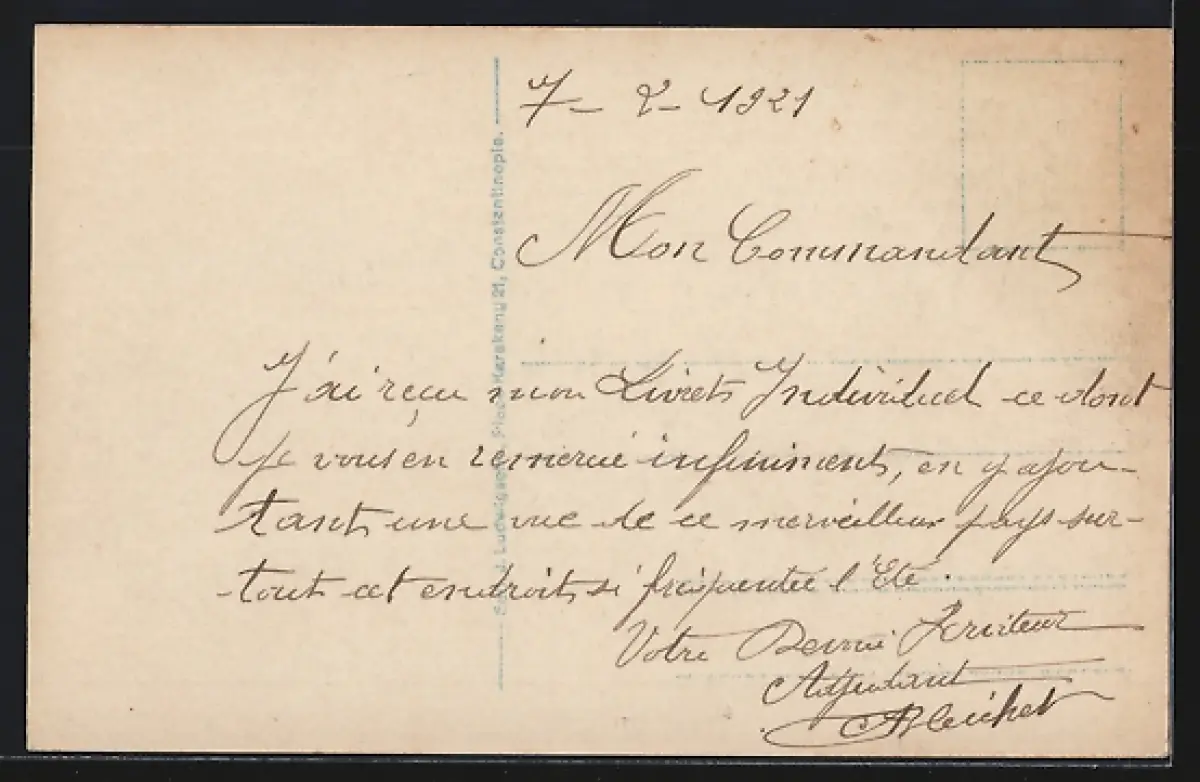 7 - 2 - 1921
Mon Commandant
J'ai reçu mon Livrets Individuel ce dont
je vous en remercie infiniment, en y ajou-
tant une vue de ce merveilleux pays sur-
tout cet endroit si fréquentée l'Eté.
Votre Devoué Serviteur
Adjudant
Ludwigsohn, Place Karakeuy 21, Constantinople.